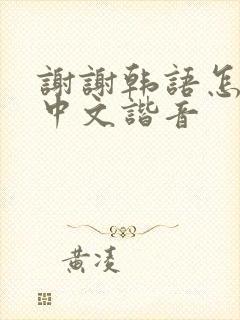 謝謝韩語怎
中文諧音
黄凌